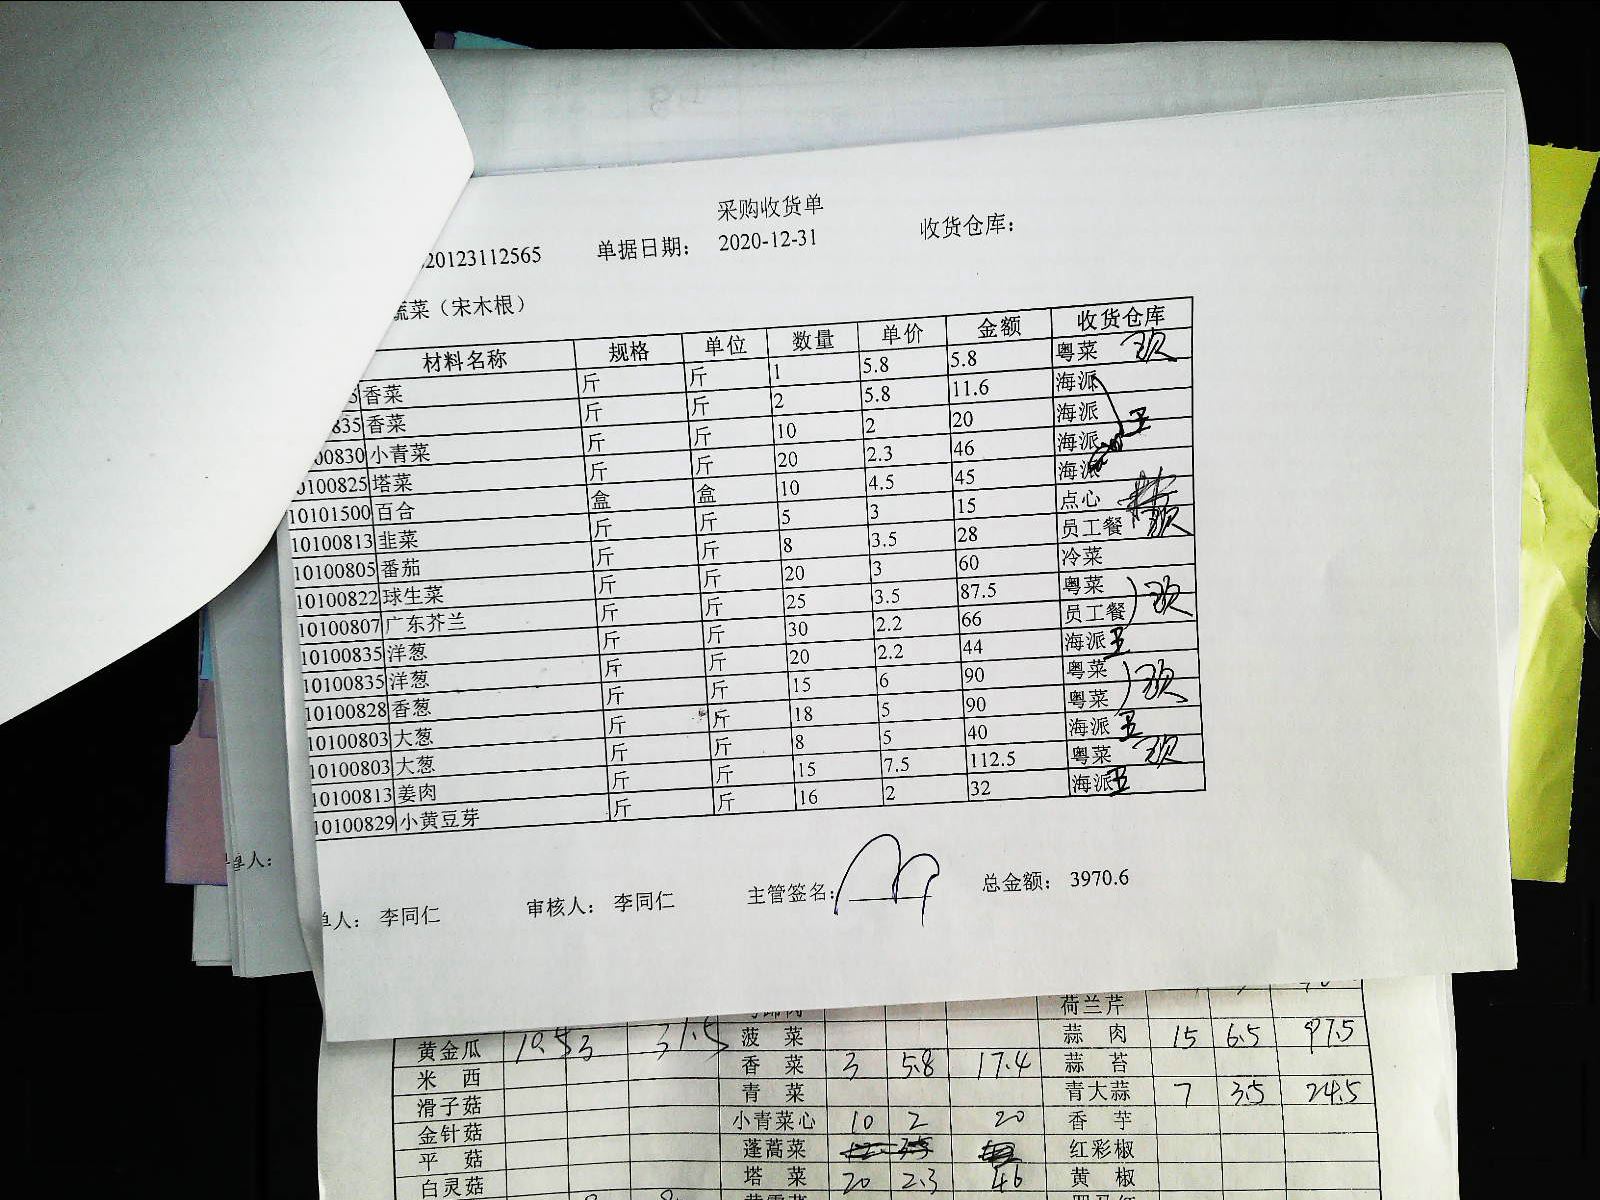 采购收货单
20123112565 单据日期： 2020-12-31 收货仓库：
蔬菜（宋木根）
材料名称 规格 单位 数量 单价 金额 收货仓库
5 香菜 斤 斤 1 5.8 5.8 粤菜
835 香菜 斤 斤 2 5.8 11.6 海派
00830 小青菜 斤 斤 10 2 20 海派
0100825 塔菜 斤 斤 20 2.3 46 海派
10101500 百合 盒 盒 10 4.5 45 海派
10100813 韭菜 斤 斤 5 3 15 点心
10100805 番茄 斤 斤 8 3.5 28 员工餐
10100822 球生菜 斤 斤 20 3 60 冷菜
10100807 广东芥兰 斤 斤 25 3.5 87.5 粤菜
10100835 洋葱 斤 斤 30 2.2 66 员工餐
10100835 洋葱 斤 斤 20 2.2 44 海派
10100828 香葱 斤 斤 15 6 90 粤菜
10100803 大葱 斤 斤 18 5 90 粤菜
10100803 大葱 斤 斤 8 5 40 海派
10100813 姜肉 斤 斤 15 7.5 112.5 粤菜
10100829 小黄豆芽 斤 斤 16 2 32 海派
单人： 李同仁 审核人： 李同仁 主管签名： 总金额： 3970.6
单人：
荷兰芹
黄金瓜 10.5 3 31.5 菠菜 蒜肉 15 6.5 97.5
米西 香菜 3 5.8 17.4 蒜苔
滑子菇 青菜 青大蒜 7 3.5 24.5
金针菇 小青菜心 10 2 20 香芋
平菇 蓬蒿菜 红彩椒
白灵菇 塔菜 20 2.3 46 黄椒